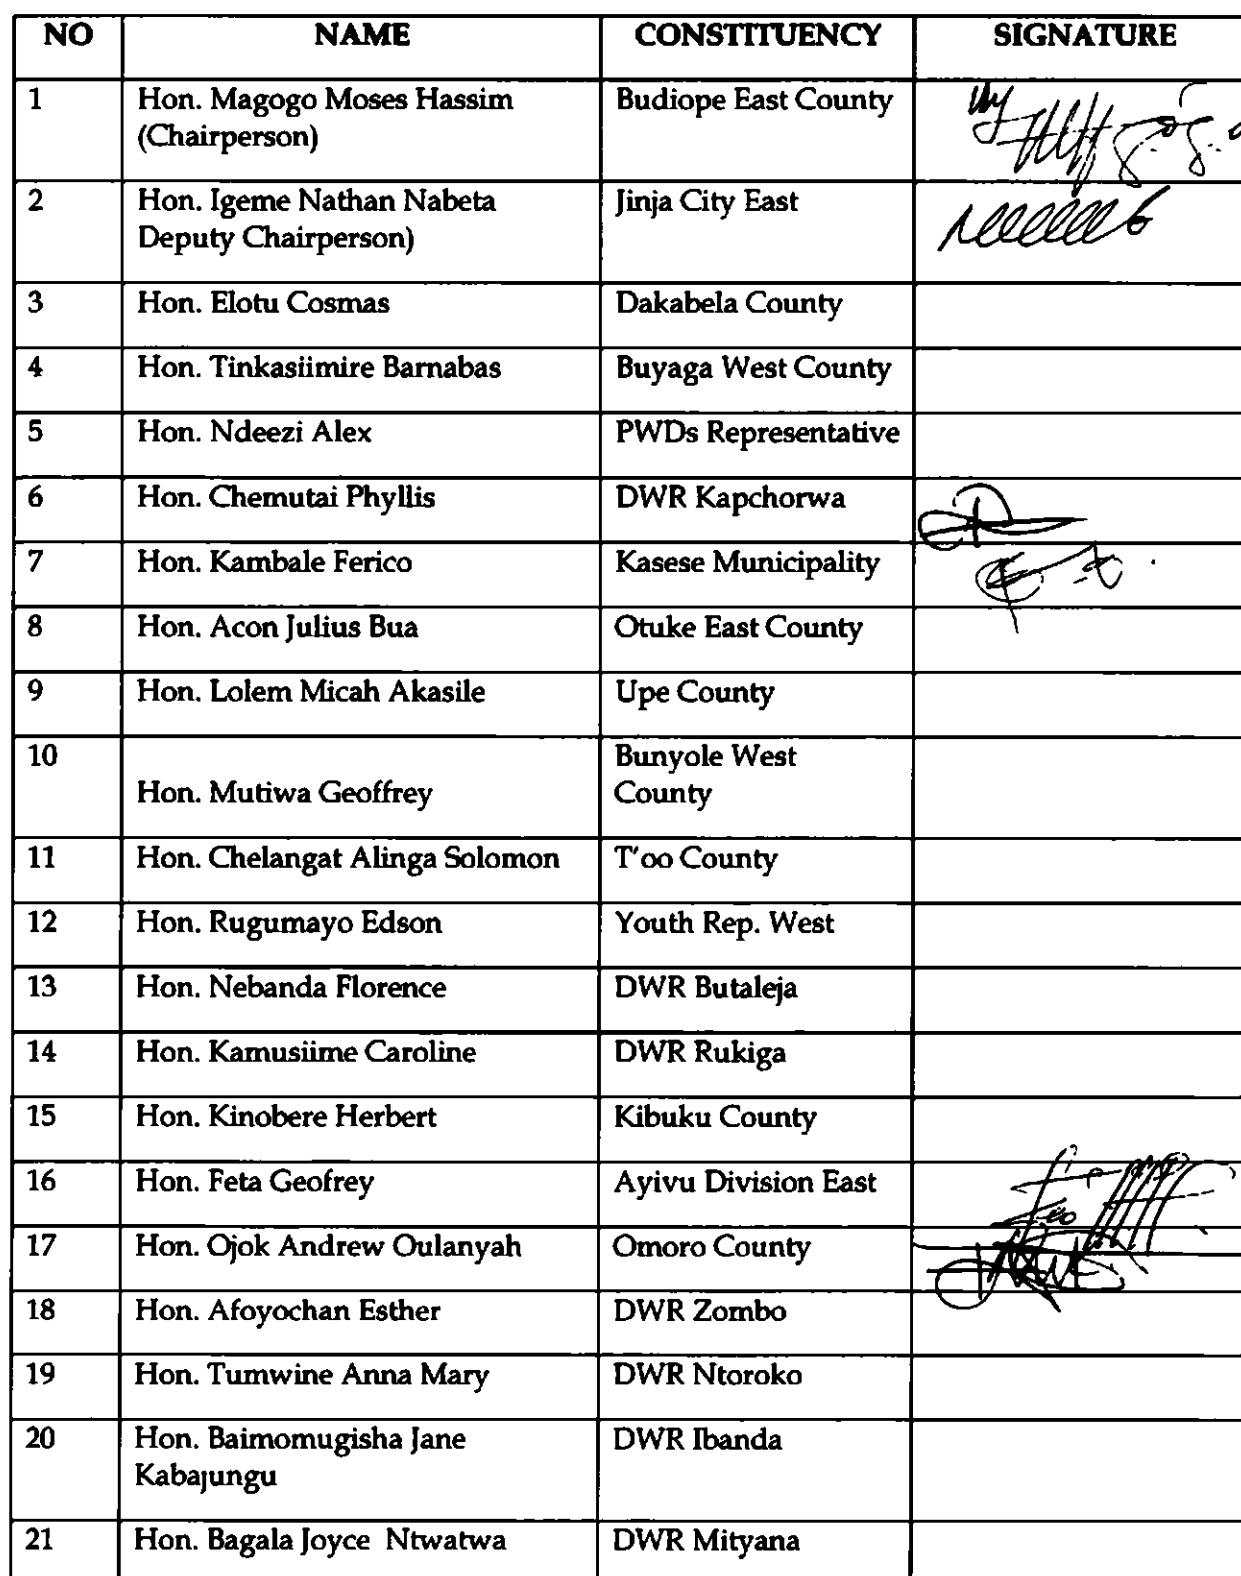 NO NAME CONSTITUENCY SIGNATURE
1 Hon. Magogo Moses Hassim Budiope East County
(Chairperson)
2 Hon. Igeme Nathan Nabeta Jinja City East
Deputy Chairperson)
3 Hon. Elotu Cosmas Dakabela County
4 Hon. Tinkasiimire Barnabas Buyaga West County
5 Hon. Ndeezi Alex PWDs Representative
6 Hon. Chemutai Phyllis DWR Kapchorwa
7 Hon. Kambale Ferico Kasese Municipality
8 Hon. Acon Julius Bua Otuke East County
9 Hon. Lolem Micah Akasile Upe County
10 Bunyole West
Hon. Mutiwa Geoffrey County
11 Hon. Chelangat Alinga Solomon T'oo County
12 Hon. Rugumayo Edson Youth Rep. West
13 Hon. Nebanda Florence DWR Butaleja
14 Hon. Kamusiime Caroline DWR Rukiga
15 Hon. Kinobere Herbert Kibuku County
16 Hon. Feta Geofrey Ayivu Division East
17 Hon. Ojok Andrew Oulanyah Omoro County
18 Hon. Afoyochan Esther DWR Zombo
19 Hon. Tumwine Anna Mary DWR Ntoroko
20 Hon. Baimomugisha Jane DWR Ibanda
Kabajungu
21 Hon. Bagala Joyce Ntwatwa DWR Mityana